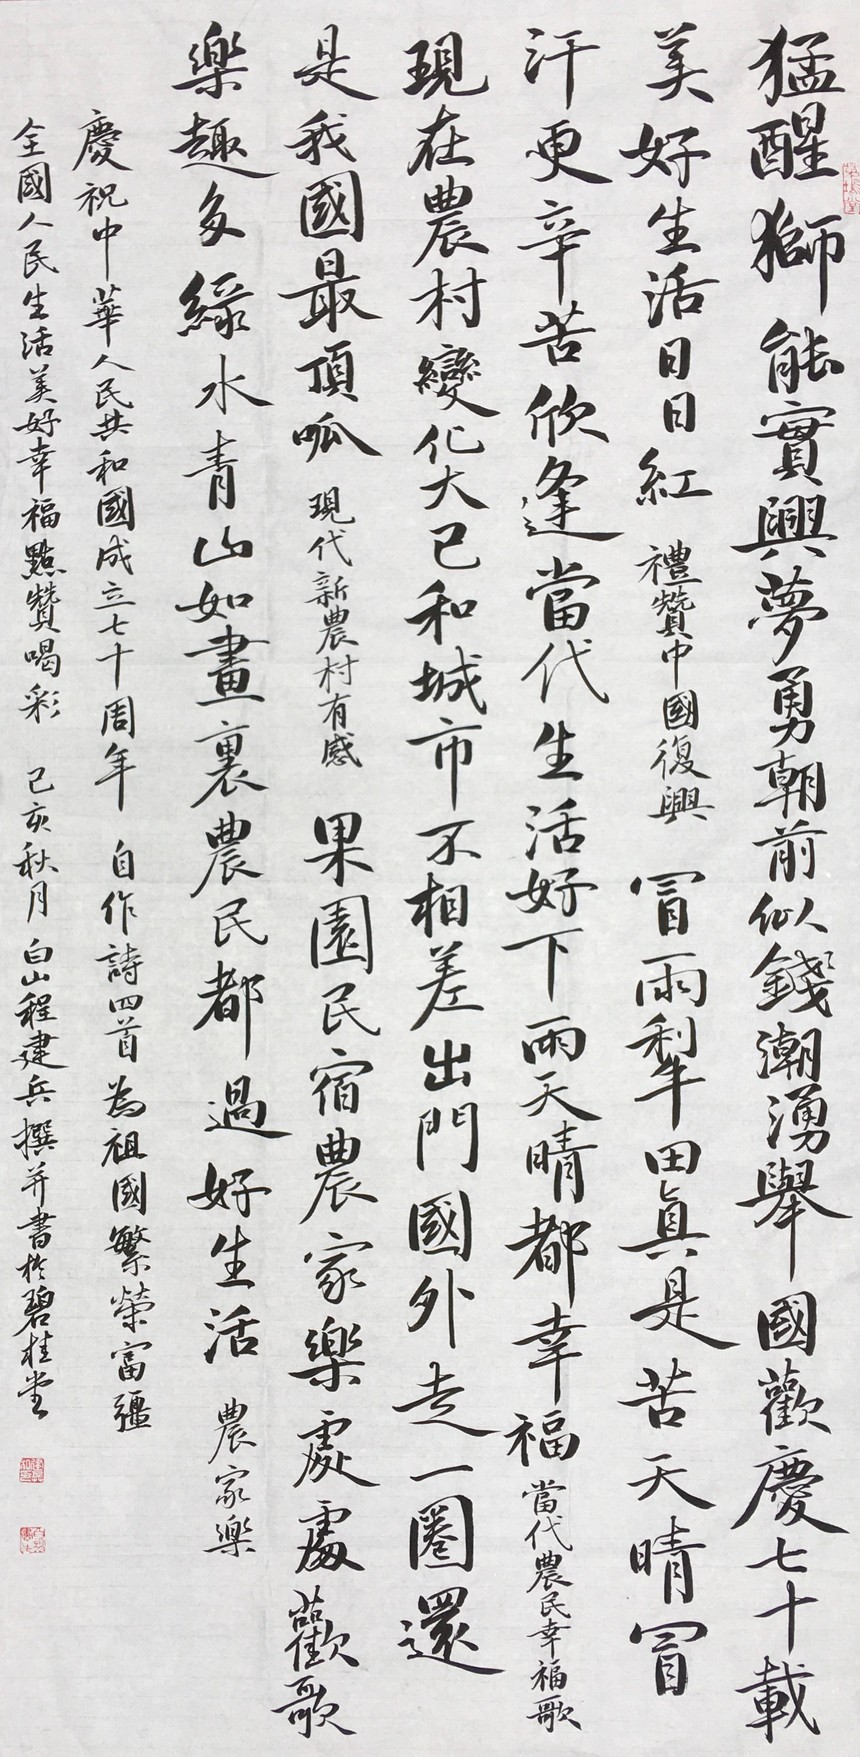 猛醒獅能實興夢勇朝前似錢潮湧舉國歡慶七十載
美好生活日日紅 禮贊中國復興 冒雨犁田真是苦天晴冒
汗更辛苦欣逢當代生活好下雨天晴都幸福 當代農民幸福歌
現在農村變化大已和城市不相差出門國外走一圈還
是我國最頂呱 現代新農村有感 果園民宿農家樂處處歡歌
樂趣多綠水青山如畫裏農民都過好生活 農家樂
慶祝中華人民共和國成立七十周年 自作詩四首為祖國繁榮富疆
全國人民生活美好幸福點贊喝彩 己亥秋月白山程建兵撰并書於碧桂堂